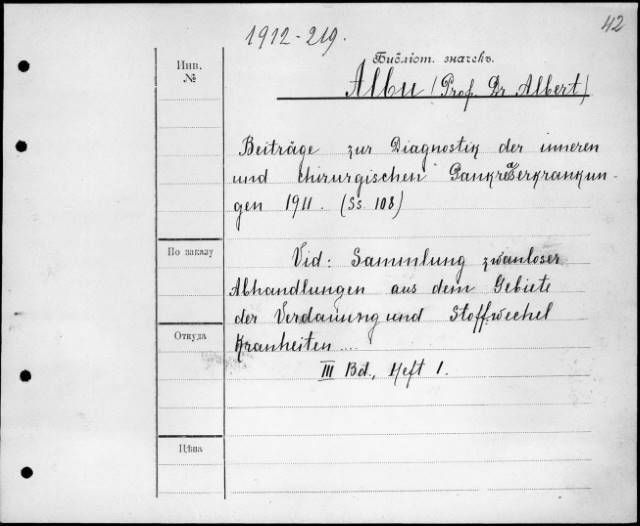 42
1912-219.
Инв.
№
Библіот. значекъ.
Albu (Prof. Dr Albert)
Beiträge zur Diagnostik der inneren
und chirurgischen Pankreserkrankun-
gen 1911. (Ss 108)
По заказу
Vid: Sammlung zwanloser
Abhandlungen aus dem Gebiete
der Verdauung und Stoffwechel
Откуда
Kranheiten ....
III Bd., Heft 1.
Цѣна